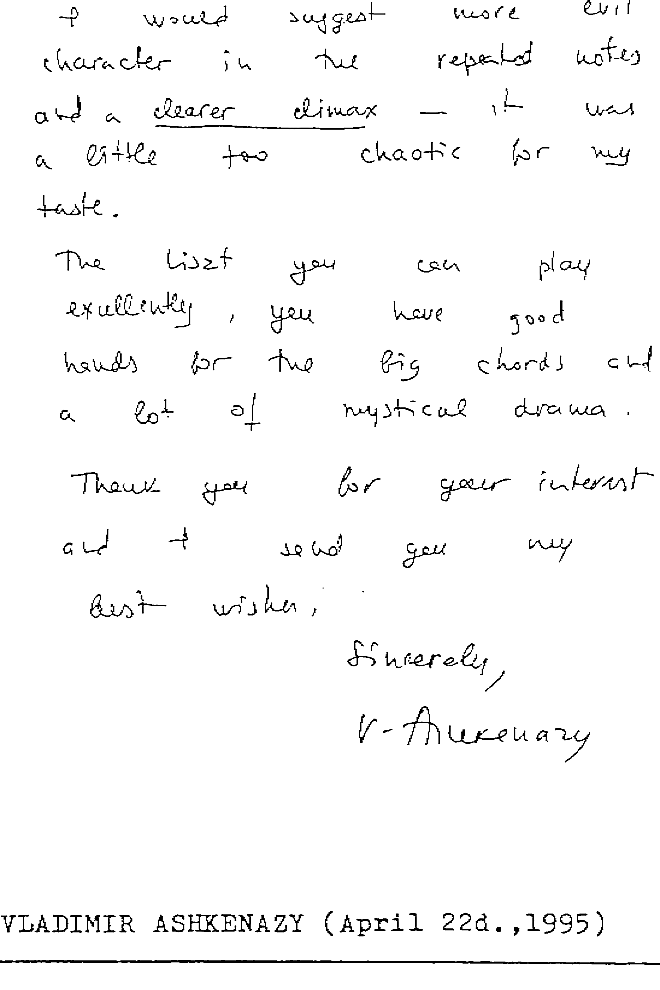 I would suggest more evil
character in the repeated notes
and a clearer climax – it was
a little too chaotic for my
taste.
The Liszt you can play
excellently, you have good
hands for the big chords and
a lot of mystical drama.
Thank you for your interest
and I send you my
best wishes,
Sincerely,
V. Ashkenazy
VLADIMIR ASHKENAZY (April 22d.,1995)